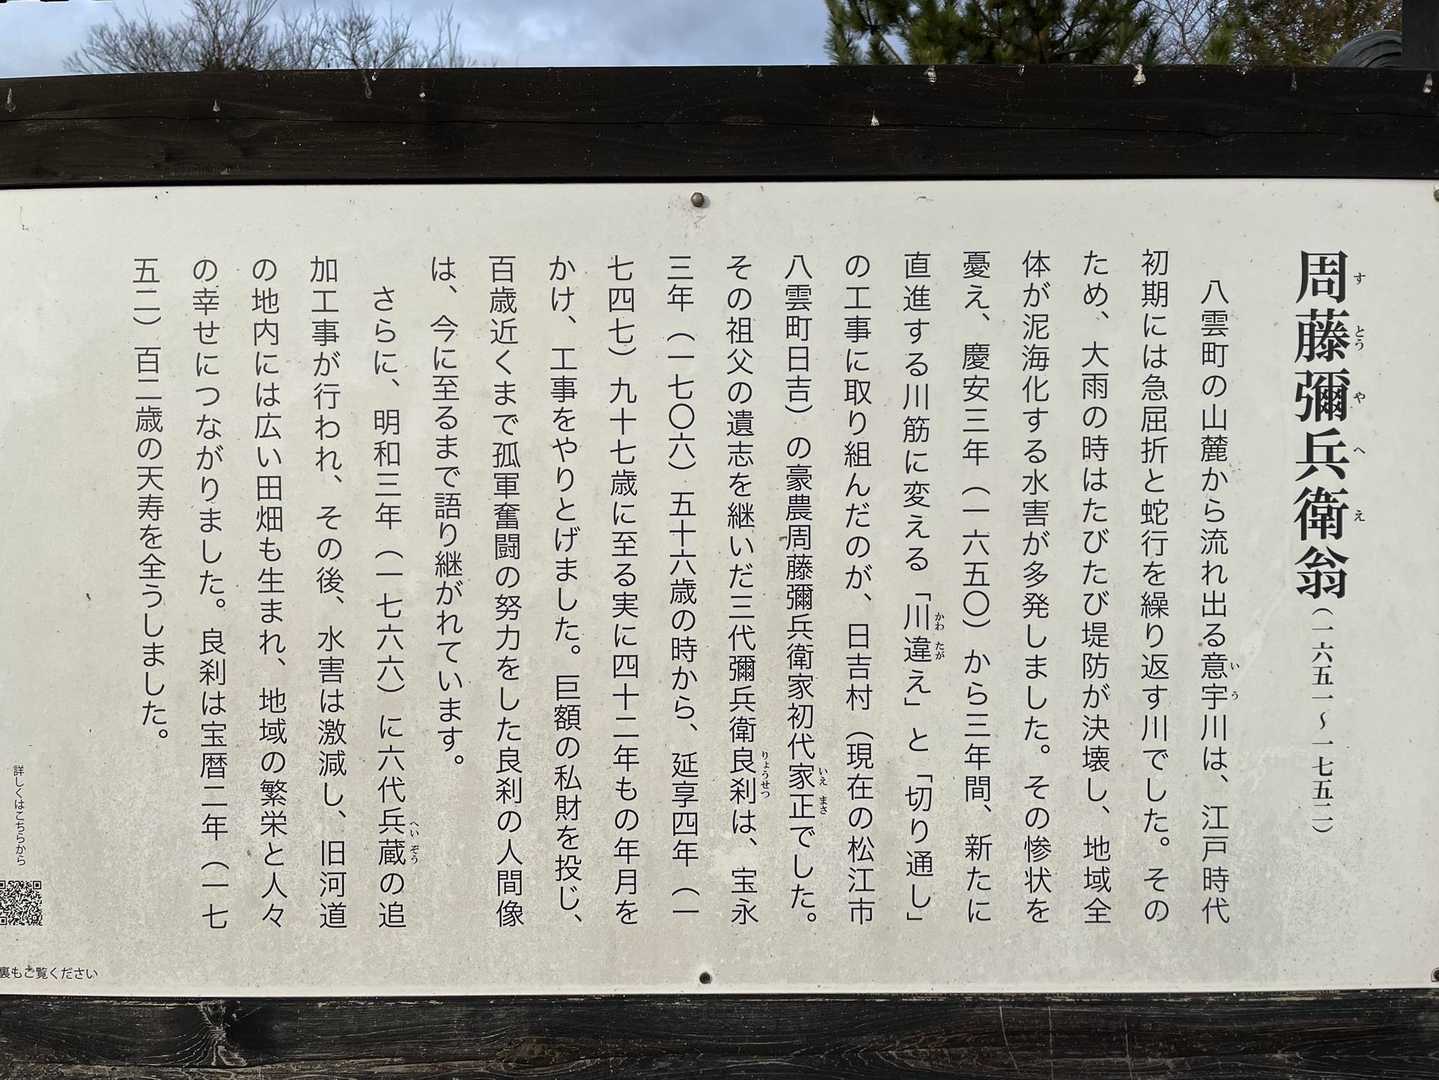 周藤彌兵衛翁（一六五一～一七五二）
すとうやへえ
八雲町の山麓から流れ出る意宇川は、江戸時代
いう
初期には急屈折と蛇行を繰り返す川でした。その
ため、大雨の時はたびたび堤防が決壊し、地域全
体が泥海化する水害が多発しました。その惨状を
憂え、慶安三年（一六五〇）から三年間、新たに
直進する川筋に変える「川違え」と「切り通し」
かわたが
の工事に取り組んだのが、日吉村（現在の松江市
八雲町日吉）の豪農周藤彌兵衛家初代家正でした。
いえまさ
その祖父の遺志を継いだ三代彌兵衛良刹は、宝永
りょうせつ
三年（一七〇六）五十六歳の時から、延享四年（一
七四七）九十七歳に至る実に四十二年もの年月を
かけ、工事をやりとげました。巨額の私財を投じ、
百歳近くまで孤軍奮闘の努力をした良刹の人間像
は、今に至るまで語り継がれています。
さらに、明和三年（一七六六）に六代兵蔵の追
へいぞう
加工事が行われ、その後、水害は激減し、旧河道
の地内には広い田畑も生まれ、地域の繁栄と人々
の幸せにつながりました。良刹は宝暦二年（一七
五二）百二歳の天寿を全うしました。
詳しくはこちらから
裏もご覧ください